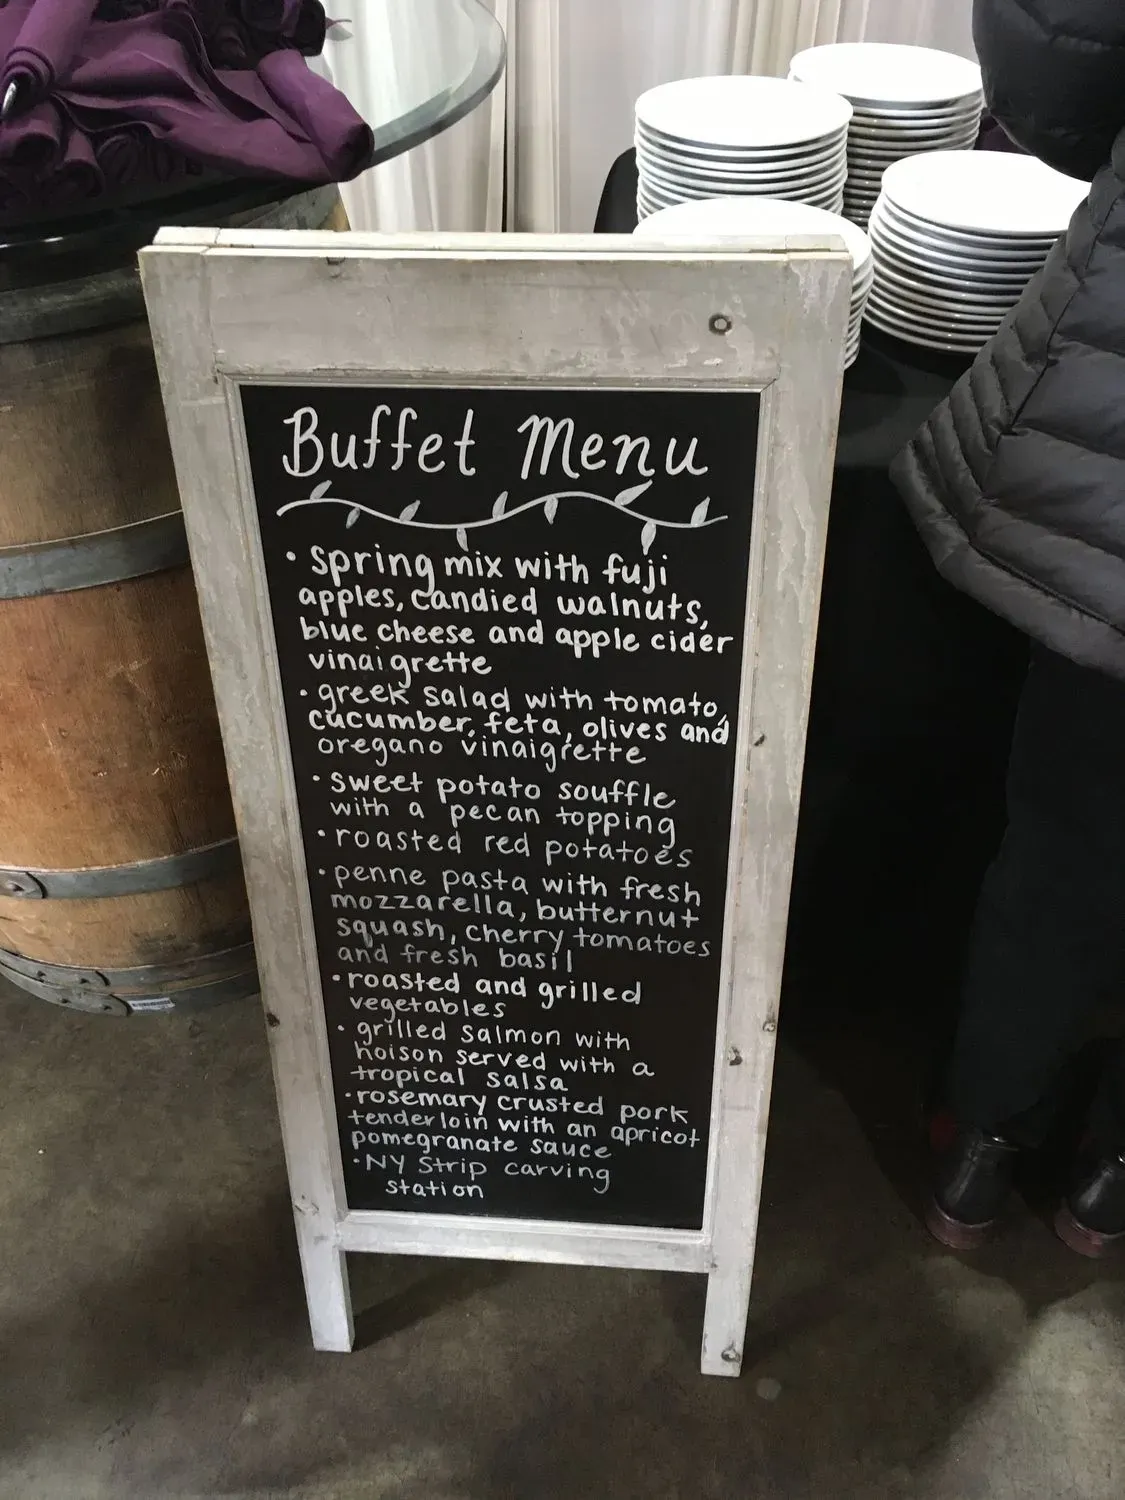 Buffet Menu
• spring mix with fuji
apples, candied walnuts,
blue cheese and apple cider
vinaigrette
• greek salad with tomato,
cucumber, feta, olives and
oregano vinaigrette
• sweet potato souffle
with a pecan topping
• roasted red potatoes
• penne pasta with fresh
mozzarella, butternut
squash, cherry tomatoes
and fresh basil
• roasted and grilled
vegetables
• grilled salmon with
hoison served with a
tropical salsa
• rosemary crusted pork
tenderloin with an apricot
pomegranate sauce
• NY Strip carving
station